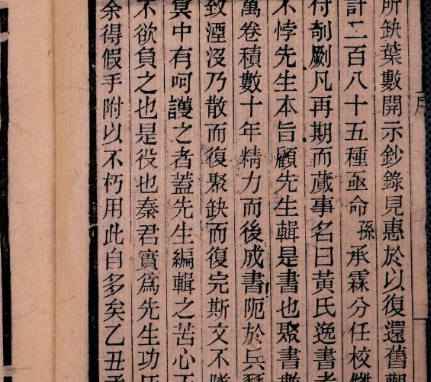 所缺葉數開示鈔錄見惠於以復還舊觀
計二百八十五種亟命孫承霖分任校讎
付剞劂凡再期而蕆事名曰黃氏逸書考
不悖先生本旨顧先生輯是書也聚書數
萬卷積數十年精力而後成書阨於兵燹
致湮沒乃散而復聚缺而復完斯文不墜
冥中有呵護之者蓋先生編輯之苦心
不欲負之也是役也秦君實為先生功
余得假手附以不朽用此自多矣乙丑